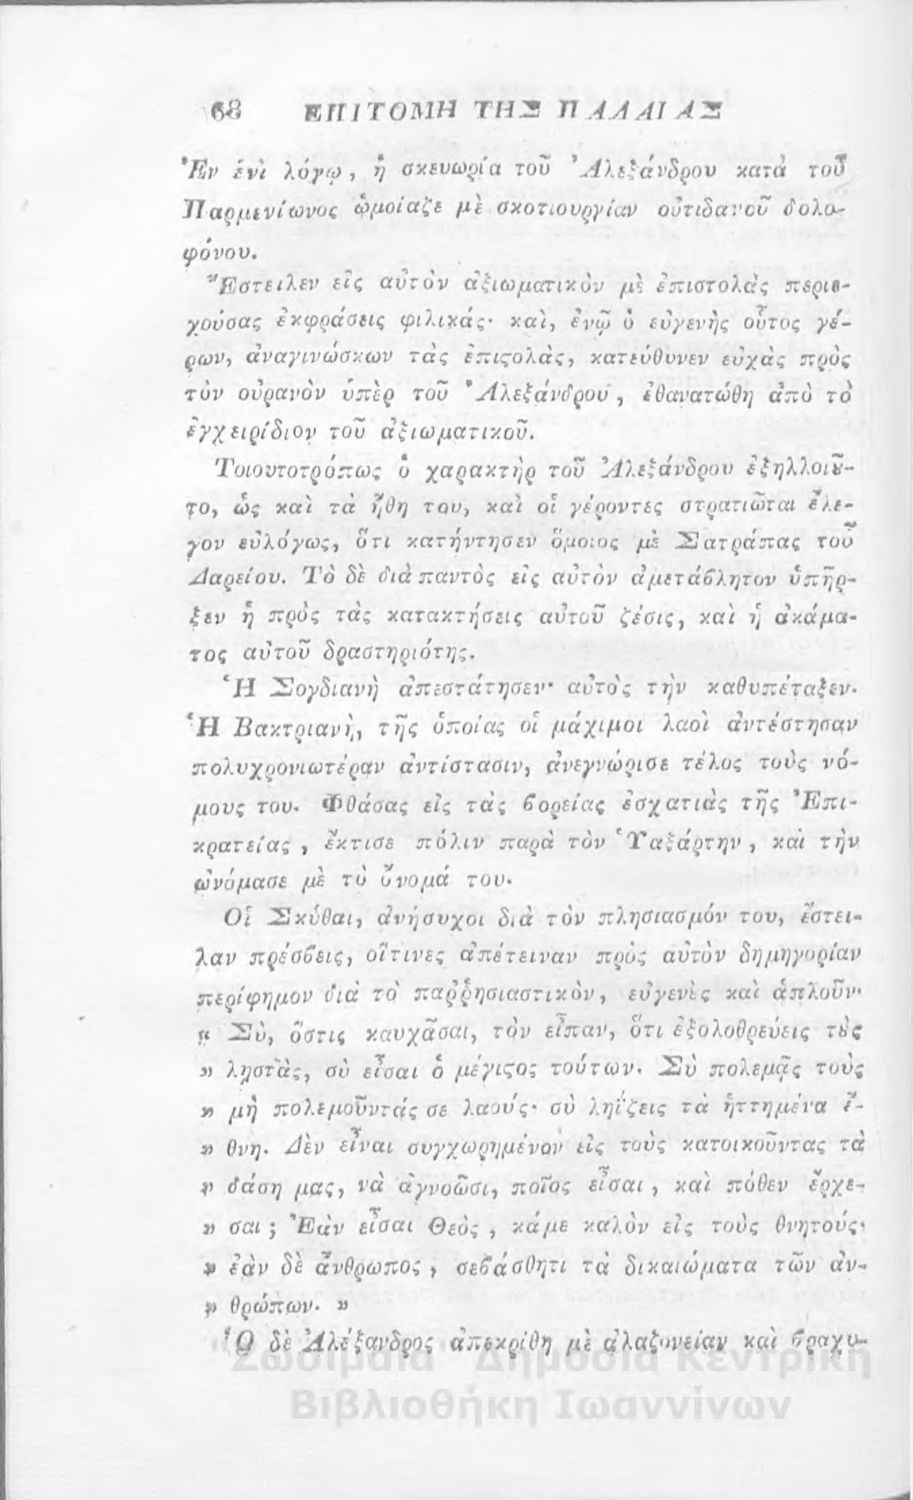 68 ΕΠΙΤΟΜΗ ΤΗΣ ΠΑΛΑΙΑΣ
Ἐν ἑνὶ λόγῳ, ἡ σκευωρία τοῦ Ἀλεξάνδρου κατὰ τοῦ
Παρμενίωνος ὡμοίαζε μὲ σκοτιουργίαν οὐτιδανοῦ δολο-
φόνου.
Ἔστειλεν εἰς αὐτὸν ἀξιωματικὸν μὲ ἐπιστολὰς περιε-
χούσας ἐκφράσεις φιλικάς· καὶ, ἐνῷ ὁ εὐγενὴς οὗτος γέ-
ρων, ἀναγινώσκων τὰς ἐπιϛολὰς, κατεύθυνεν εὐχὰς πρὸς
τὸν οὐρανὸν ὑπὲρ τοῦ Ἀλεξάνδρου, ἐθανατώθη ἀπὸ τὸ
ἐγχειρίδιον τοῦ ἀξιωματικοῦ.
Τοιουτοτρόπως ὁ χαρακτὴρ τοῦ Ἀλεξάνδρου ἐξηλλοιȣ͂-
το, ὡς καὶ τὰ ἤθη του, καὶ οἱ γέροντες στρατιῶται ἔλε-
γον εὐλόγως, ὅτι κατήντησεν ὅμοιος μὲ Σατράπας τοῦ
Δαρείου. Τὸ δὲ διὰ παντὸς εἰς αὐτὸν ἀμετάϐλητον ὑπῆρ-
ξεν ἡ πρὸς τὰς κατακτήσεις αὐτοῦ ζέσις, καὶ ἡ ἀκάμα-
τος αὐτοῦ δραστηριότης.
Ἡ Σογδιανὴ ἀπεστάτησεν· αὐτὸς τὴν καθυπέταξεν.
Ἡ Βακτριανὴ, τῆς ὁποίας οἱ μάχιμοι λαοὶ ἀντέστησαν
πολυχρονιωτέραν ἀντίστασιν, ἀνεγνώρισε τέλος τοὺς νό-
μους του. Φθάσας εἰς τὰς ϐορείας ἐσχατιὰς τῆς Ἐπι-
κρατείας, ἔκτισε πόλιν παρὰ τὸν Ὑαξάρτην, καὶ τὴν
ὠνόμασε μὲ τὸ ὄνομά του.
Οἱ Σκύθαι, ἀνήσυχοι διὰ τὸν πλησιασμόν του, ἔστει-
λαν πρέσϐεις, οἵτινες ἀπέτειναν πρὸς αὐτὸν δημηγορίαν
περίφημον διὰ τὸ παῤῥησιαστικὸν, εὐγενὲς καὶ ἁπλοῦν·
« Σὺ, ὅστις καυχᾶσαι, τὸν εἶπαν, ὅτι ἐξολοθρεύεις τȣ̀ς
» λῃστὰς, σὺ εἶσαι ὁ μέγιϛος τούτων. Σὺ πολεμᾷς τοὺς
» μὴ πολεμοῦντάς σε λαούς· σὺ ληΐζεις τὰ ἡττημένα ἔ-
» θνη. Δὲν εἶναι συγχωρημένον εἰς τοὺς κατοικοῦντας τὰ
» δάση μας, νὰ ἀγνοῶσι, ποῖος εἶσαι, καὶ πόθεν ἔρχε-
» σαι; Ἐὰν εἶσαι Θεὸς, κάμε καλὸν εἰς τοὺς θνητούς·
» ἐὰν δὲ ἄνθρωπος, σεϐάσθητι τὰ δικαιώματα τῶν ἀν-
» θρώπων. »
Ὁ δὲ Ἀλέξανδρος ἀπεκρίθη μὲ ἀλαζονείαν καὶ ϐραχυ-
Ζωσιμαία Δημόσια Κεντρική
Βιβλιοθήκη Ιωαννίνων